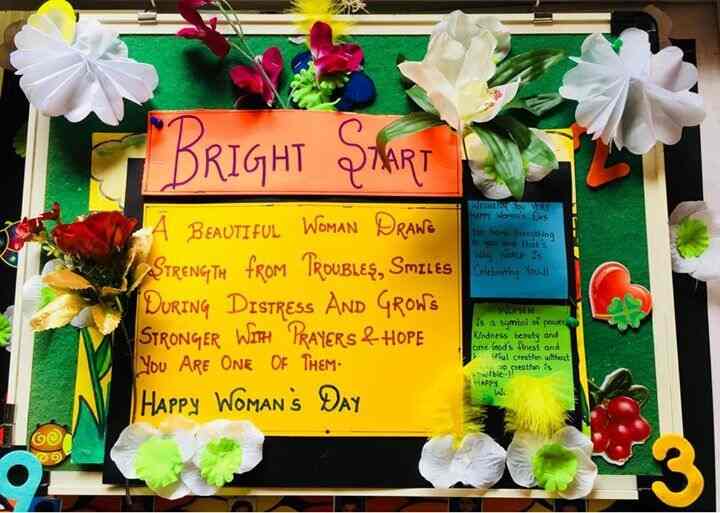 BRIGHT START
A BEAUTIFUL WOMAN DRAWS
STRENGTH FROM TROUBLES, SMILES
DURING DISTRESS AND GROWS
STRONGER WITH PRAYERS & HOPE
YOU ARE ONE OF THEM.
HAPPY WOMAN'S DAY
Wishing You Very
Happy Women's Day
You have Everything
in you and that's
why World Is
Celebrating You!!
WOMEN
is a symbol of power
Kindness beauty and
one God's finest and
creation without
no creation is
HAPPY
2
9
3